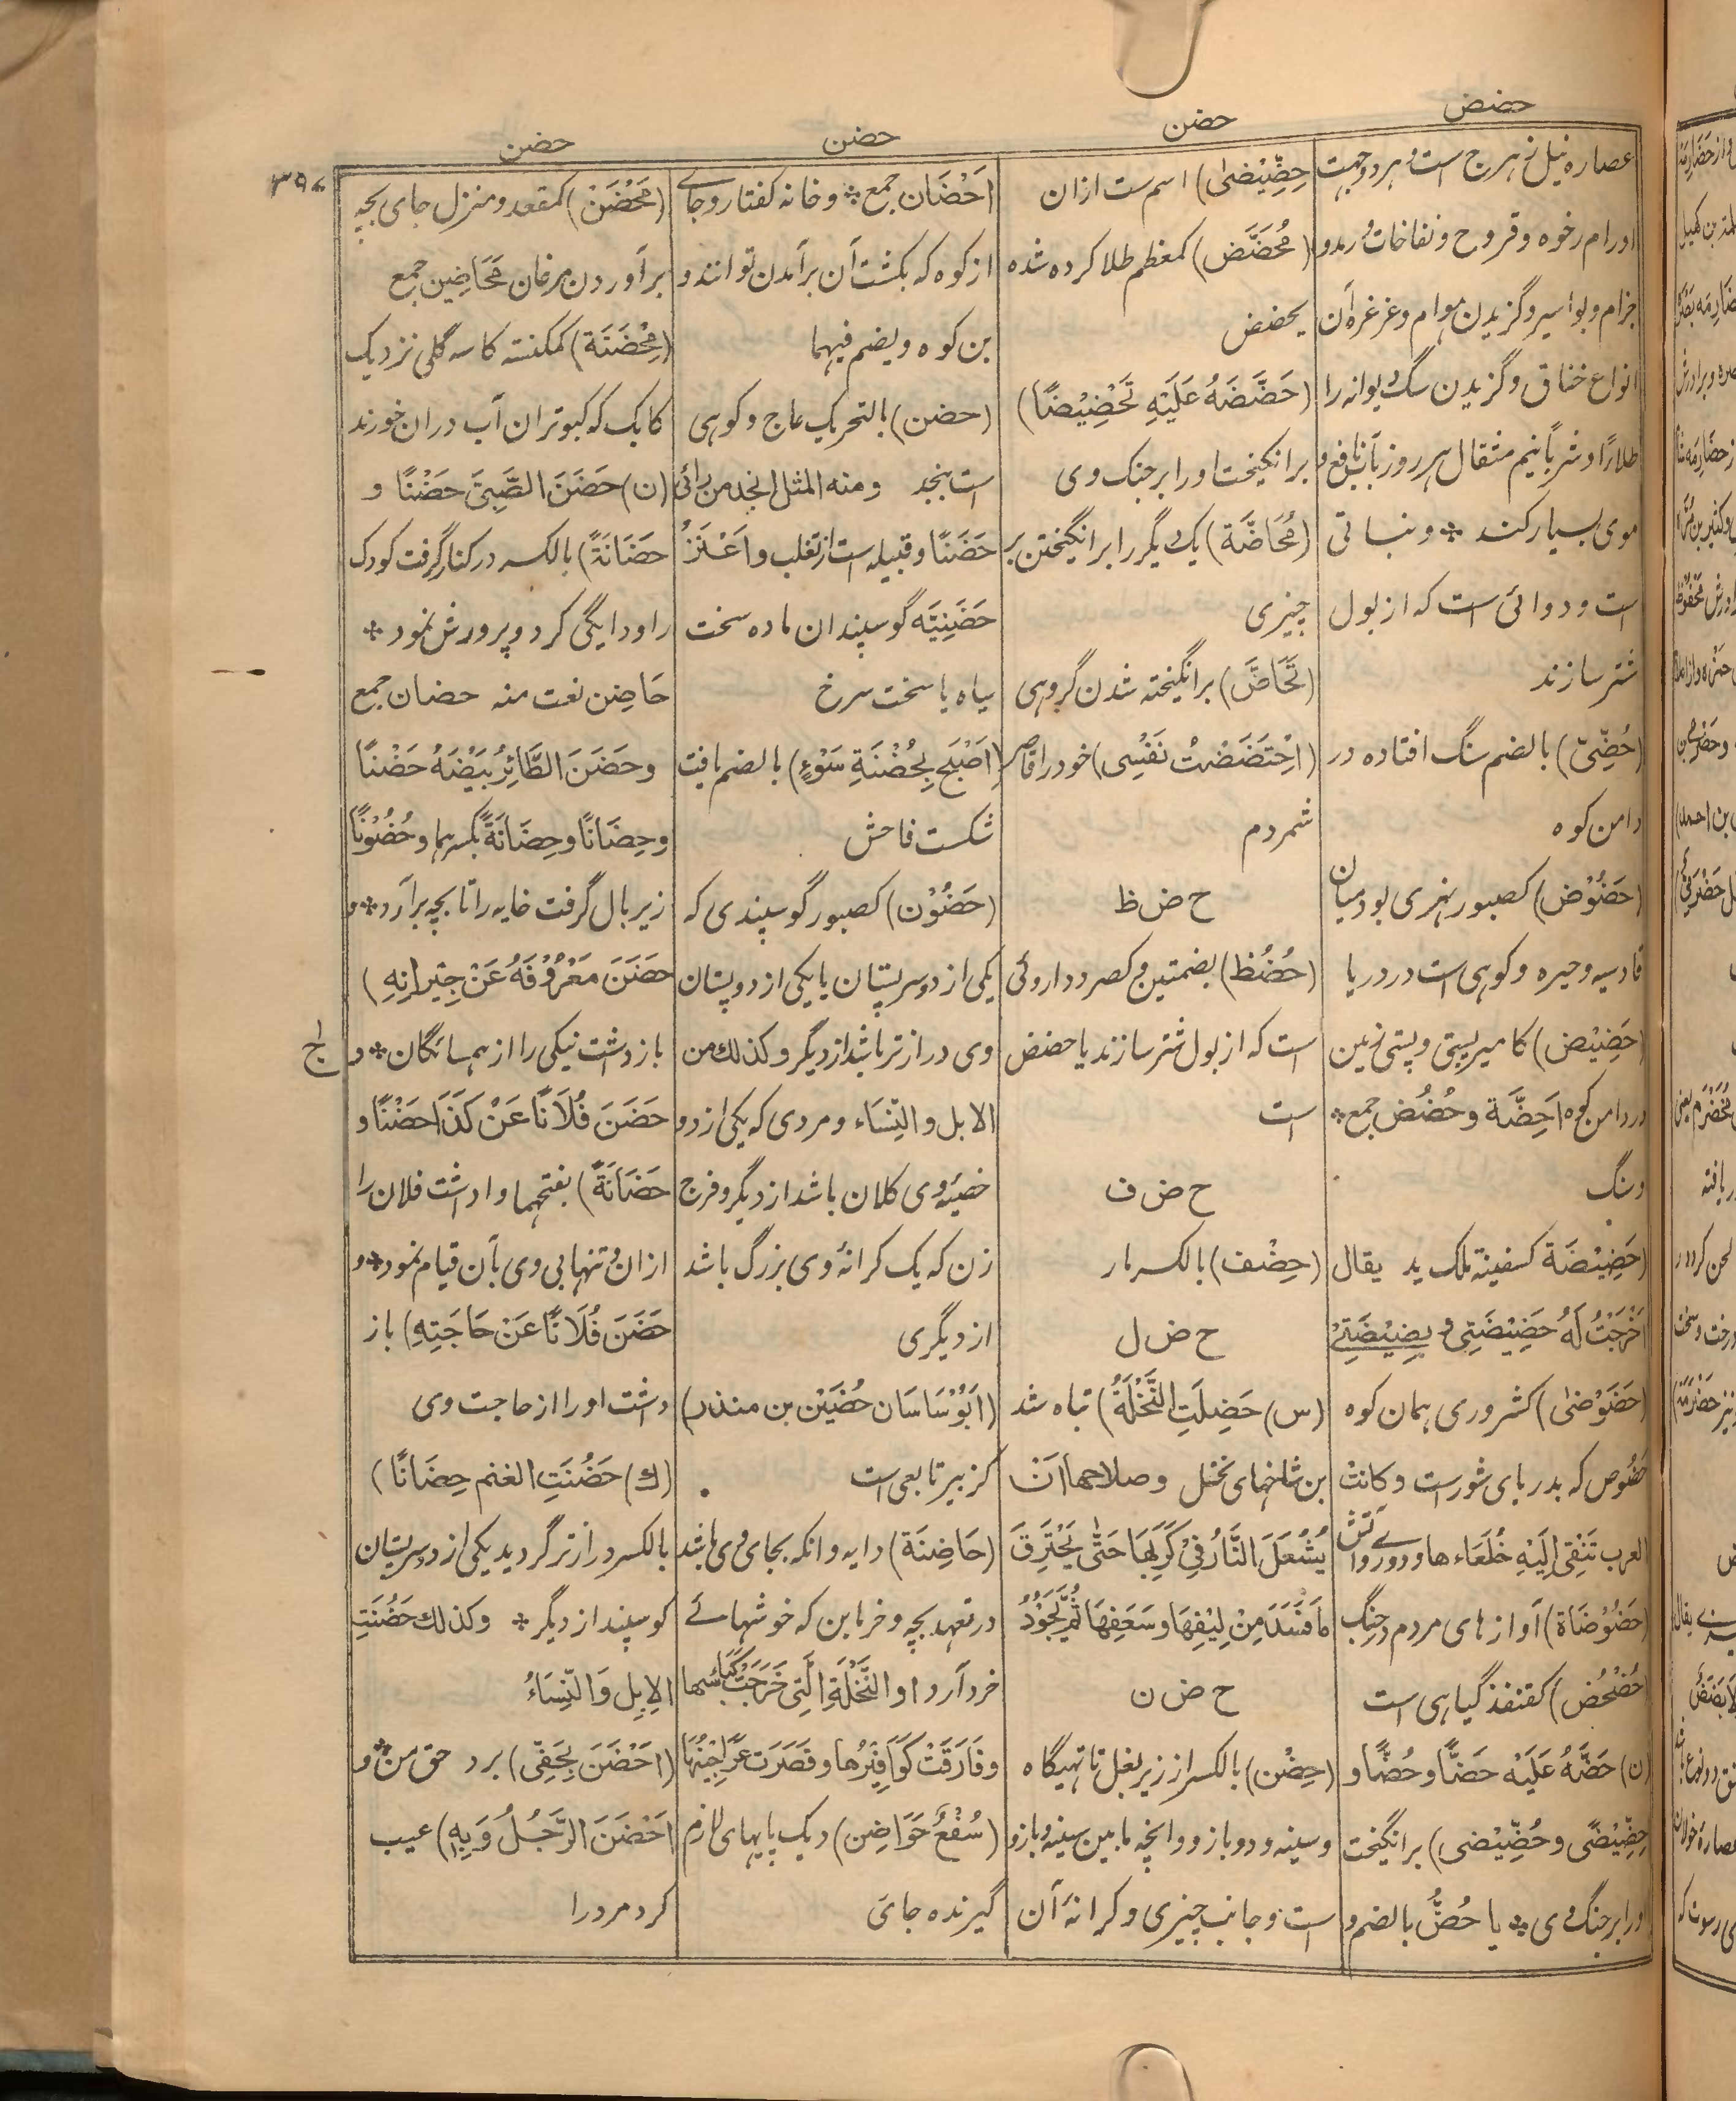 حضض
حضن
حضن
حضن
۳۹۷
عصاره نیل نهرج است و هر دو جهت
اورام رخوه و قروح و نفاخات و رمد و
جزام و بواسیر و گزیدن هوام و غرغره آن
انواع خناق و گزیدن سگ دیوانه را
طلاءً او شرباً نیم مثقال هر روز بآب نافع و
موی بسیار کند * و نباتی
است و دوائی است که از بول
شتر سازند
(حُضِّیّ) بالضم سنگ افتاده در
دامن کوه
(حَضُوْض) کصبور نهری بود میان
قادسیه و حیره و کوهی است در دریا
(حَضِیْض) کامیر پستی و پستی زمین
در دامن کوه اَحِضَّة و حُضُض جمع *
و سنگ
(حَضِیْضَة) کسفینة ملک ید یقال
اَخْرَجْتُ لَهُ حَضِیْضَتِی و بَضِیْضَتِیْ
(حَضَوْضٰی) کشروری همان کوه
حَضُوض که بدریای شور است و کانت
العرب تَنْفِی اِلَیْهِ خُلَعَاءها و دوری و آتش
(حَضُوْضَاة) آوازهای مردم و جنگ
(حُضْحُض) کقنفذ گیاهی است
(ن) حَضَّهُ عَلَیْهِ حَضًّا و حُضًّا و
حِضِّیْضًی و حُضِّیْضی) برانگیخت
او را بر جنگ وی * یا حُضٌّ بالضم و
حِضِّیْضٰی) اسم ست ازان
(مُحَضَّض) کمعظم طلا کرده شده
بحضض
(حَضَّضَهُ عَلَیْهِ تَحْضِیْضًا)
برانگیخت او را بر جنگ وی
(مُحَاضَّة) یک دیگر را برانگیختن بر
چیزی
(تَحَاضَّ) برانگیخته شدن گروهی
(اِحْتَضَضْتُ نَفْسِی) خود را قاصر
شمردم
ح ض ظ
(حُضُظ) بضمتین و کصرد داروئی
است که از بول شتر سازند یا حضض
است
ح ض ف
(حِضْف) بالکسر مار
ح ض ل
(س) حَضِلَتِ النَّخْلَةُ) تباه شد
بن شاخهای نخل و صلاحها اَن
یُشْعَلَ النَّارُ فِیْ کَرَبِهَا حَتّٰی یَحْتَرِقَ
مَا فَسَدَ مِنْ لِیْفِهَا و سَعَفِهَا ثُمَّ یَجُوْدُ
ح ض ن
(حِضْن) بالکسر از زیر بغل تا تهیگاه
و سینه و دو بازو و انچه مابین سینه و بازو
است و جانب چیزی و کرانهٔ آن
اَحْضَان جمع * و خانه کفتار و جاے
از کوه که بگشت آن برآمدن توانند و
بن کوه و یضم فیهما
(حضن) بالتحریک عاج و کوهی
است بنجد و منه المثل انجد من رائی
حَضَنًا و قبیله است از تغلب و اَعْنُزٌ
حَضَنِیَّه گوسپندان ماده سخت
سیاه یا سخت سرخ
(اَصْبَحَ بِحُضْنَةِ سَوْءٍ) بالضم یافت
شکست فاحش
(حَضُوْن) کصبور گوسپندی که
یکی از دو سر پستان یا یکی از دو پستان
وی درازتر باشد از دیگر و کذلك من
الابل و النِّسَاء و مردی که یکی از دو
خصیهٔ وی کلان باشد از دیگر و فرج
زن که یک کرانهٔ وی بزرگ باشد
از دیگری
(اَبُوْسَاسَان حُضَیْن بن منذر)
کزبیر تابعی است
(حَاضِنَة) دایه و انکه بجای وی باشد
در تعهد بچه و خرمابن که خوشهاے
خرد آرد او النَّخْلَةِ الَّتِی خَرَجَتْ کَبَائِسُها
و فَارَقَتْ کَوَافِیْرَها و قَصُرَت عَرَاجِیْنُهَا
(سُفْعٌ حَوَاضِن) دیک پایهای لازم
گیرنده جای
(مَحْضَنْ) کمقعد و منزل جای بچه
برآوردن مرغان مَحَاضِین جمع
(مِحْضَنَة) کمکنسة کاسه گلی نزدیک
کابک که کبوتران آب دران خورند
(ن) حَضَنَ الصَّبِیَّ حَضْنًا و
حِضَانَةً) بالکسر در کنار گرفت کودک
را و دایگی کرد و پرورش نمود *
حَاضِن نعت منه حضان جمع
و حَضَنَ الطَّائِرُ بَیْضَهُ حَضْنًا
و حِضَانًا و حِضَانَةً بکسرهما و حُضُوْنًا
زیر بال گرفت خایه را تا بچه برآرد * و
حَضَنَ مَعْرُوْفَهُ عَنْ جِیْرانِهِ)
بازداشت نیکی را از همسائگان * و
حَضَنَ فُلَانًا عَنْ کَذَا حَضْنًا و
حَضَانَةً) بفتحهما وا داشت فلان را
ازان و تنها بی وی بآن قیام نمود * و
حَضَنَ فُلَانًا عَنْ حَاجَتِهِ) باز
داشت او را از حاجت وی
(ك) حَضُنَتِ الغنم حِضَانًا)
بالکسر درازتر گردید یکی از دو سر پستان
گوسپند از دیگر * و کذلك حَضُنَتِ
الاِبِل وَ النِّسَاءُ
(اَحْضَنَ بِحَقِّی) برد حق من * و
اَحْضَنَ الرَّجُلُ وَ بِهِ) عیب
کرد مرد را